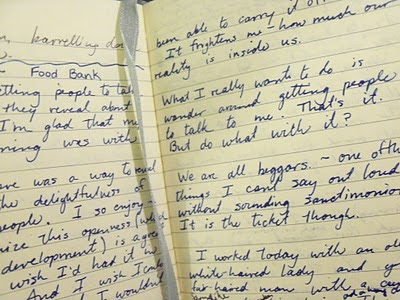 barrelling do
Food Bank
etting people to talk
they reveal about
I'm glad that me
ning was with
ere was a way to reveal
the delightfulness of
people. I so enjoy
this openness
development) is a
wish I'd had it
And I wish I
I wouldn
been able to carry it
It frightens me - how much our
reality is inside us.
What I really want to do is
wander around getting people
to talk to me. That's it.
But do what with it?
We are all beggars. ~ one of the
things I can't say out loud
without sounding sanctimonio
It is the ticket though.
I worked today with an ol
white-haired lady and a
haired man with a